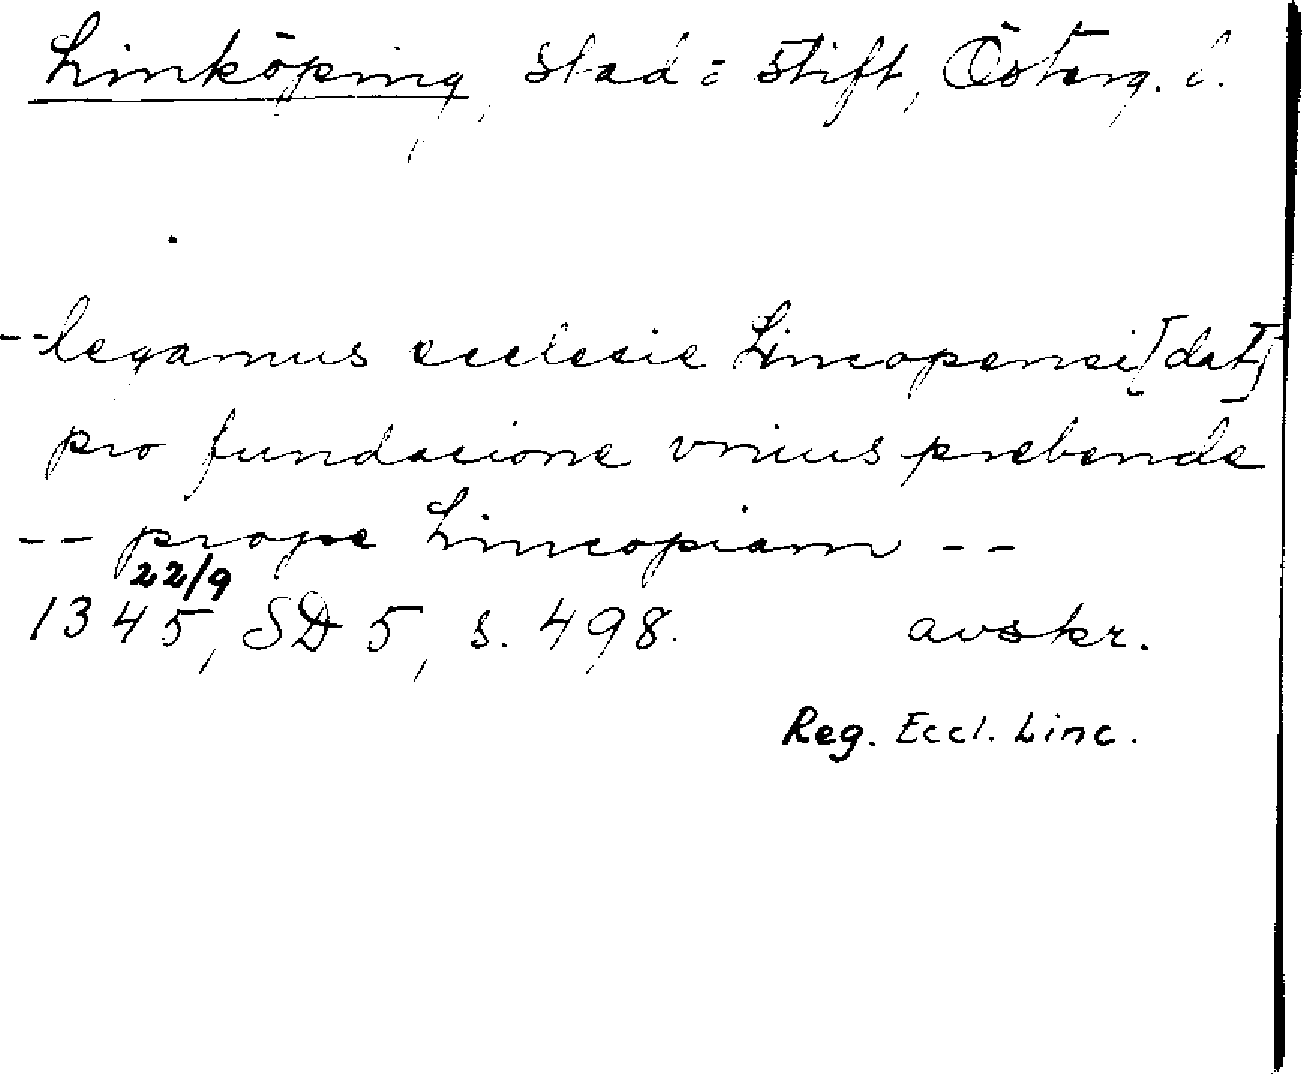 Linköping, stad o stift, Österg. l.
--legamus ecclesie Lincopensi [dat]
pro fundacione vnius prebende
-- prope Lincopiam --
22/9
1345, SD 5, s. 498. avskr.
Reg. Eccl. Linc.